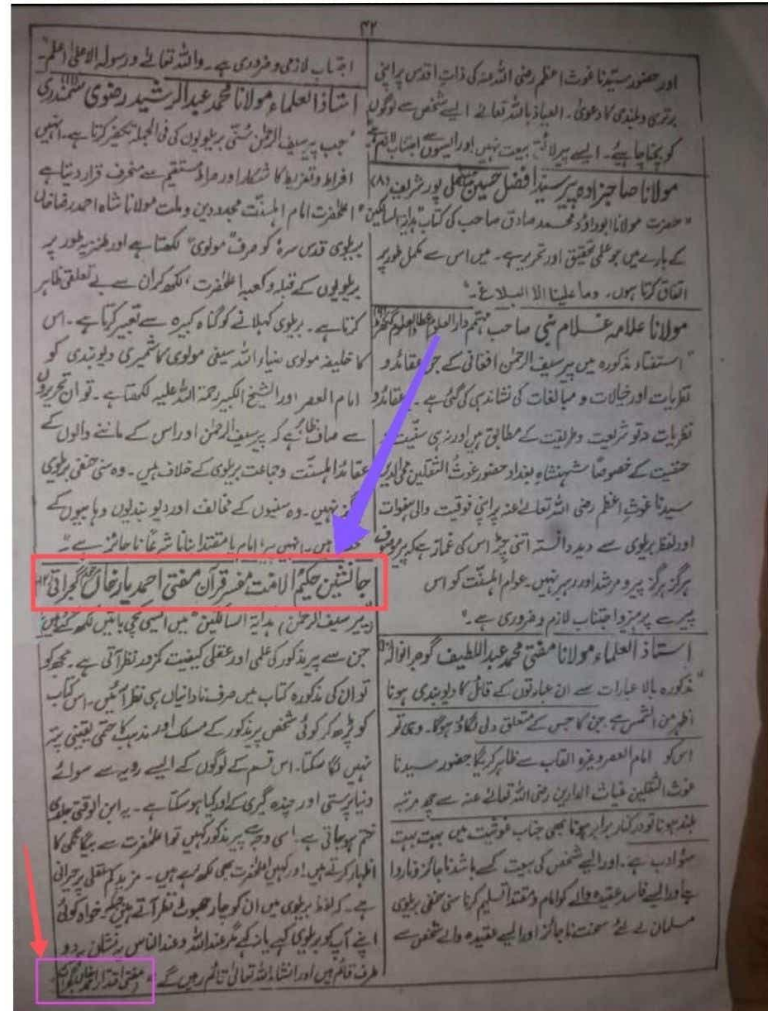 ۴۲
اور حضور سیدنا غوث اعظم رضی اللہ عنہ کی ذاتِ اقدس پر اپنی
برتری و بلندی کا دعویٰ۔ العیاذ باللہ تعالےٰ ایسے شخص سے لوگوں
کو بچنا چاہیے۔ ایسے پیر لائقِ بیعت نہیں اور ایسوں سے اجتناب لازم ہے
مولانا صاحبزادہ پیر سید افضل حسین پور شریف (۸)
حضرت مولانا ابوداؤد محمد صادق صاحب کی کتاب
کے بارے میں جو علمی تحقیق اور تحریر ہے۔ میں اس سے مکمل طور پر
اتفاق کرتا ہوں۔ وما علینا الا البلاغ۔
مولانا علامہ غلام نبی صاحب مہتمم دارالعلوم
"استفتاء مذکورہ میں پیر سیف الرحمٰن افغانی کے جو عقائد و
نظریات اور خیالات و مبالغات کی نشاندہی کی گئی ہے۔ عقائد و
نظریات نہ تو شریعت و طریقت کے مطابق ہیں اور نہ ہی سنّیت و
حنفیت کے خصوصاً شہنشاہِ بغداد حضور غوثُ الثقلین محی الدین
سیدنا غوثِ اعظم رضی اللہ تعالےٰ عنہ پر اپنی فوقیت والی ہفوات
اور لفظ بریلوی سے دیدہ دانستہ اتنی چڑ اس کی غماز ہے کہ پیر موصوف
ہرگز ہرگز پیر و مرشد اور رہبر نہیں۔ عوام اہلسنّت کو اس
پیر سے پرہیز و اجتناب لازم و ضروری ہے۔"
استاذ العلماء مولانا مفتی محمد عبداللطیف گوجرانوالہ
"مذکورہ بالا عبارات سے ان عبارتوں کے قائل کا دیوبندی ہونا
اظہر من الشمس ہے جن کا جس کے متعلق دلی لگاؤ ہوگا۔ وہی تو
اس کو امام العصر وغیرہ القاب سے ظاہر کریگا حضور سیدنا
غوث الثقلین غیاث الدارین رضی اللہ تعالےٰ عنہ سے چھ مرتبہ
بلند ہونا تو درکنار برابر ہونا بھی جناب غوثیت میں بہت بہت
سؤ ادب ہے۔ اور ایسے شخص کی بیعت کسے باشد ناجائز و ناروا
ہے اور ایسے فاسد عقیدہ والے کو امام و مقتدا تسلیم کرنا سنی حنفی بریلوی
مسلمان کے لئے سخت ناجائز اور ایسے عقیدہ والے شخص سے
اجتناب لازمی و ضروری ہے۔ واللہ تعالےٰ و رسولہ الاعلیٰ اعلم۔
استاذ العلماء مولانا محمد عبدالرشید رضوی سمندری
"جب پیر سیف الرحمٰن سُنّی بریلویوں کی فی الجملہ تحقیر کرتا ہے۔ انہیں
افراط و تفریط کا شکار اور صراطِ مستقیم سے منحرف قرار دیتا ہے
اعلحضرت امام اہلسنّت مجدد دین و ملت مولانا شاہ احمد رضا خاں
بریلوی قدس سرہٗ کو صرف "مولوی" لکھتا ہے اور طنزیہ طور پر
بریلویوں کے قبلہ و کعبہ اعلحضرت، لکھ کر ان سے بے تعلقی ظاہر
کرتا ہے۔ بریلوی کہلانے کو گناہ کبیرہ سے تعبیر کرتا ہے۔ اس
کا خلیفہ مولوی ضیاء اللہ سیفی مولوی کاشمیری دیوبندی کو
امام العصر اور الشیخ الکبیر رحمۃ اللہ علیہ لکھتا ہے۔ تو ان تحریروں
سے صاف ظاہر ہے کہ پیر سیف الرحمٰن اور اس کے ماننے والوں کے
عقائد اہلسنّت وجماعت بریلوی کے خلاف ہیں۔ وہ سنی حنفی بریلوی
ہرگز نہیں۔ وہ سنیوں کے مخالف اور دیوبندیوں وہابیوں کے
ہیں۔ انہیں پیر، امام یا مقتدا بنانا شرعاً ناجائز ہے۔"
جانشین حکیم الامت مفسر قرآن مفتی احمد یار خاں گجراتی
"پیر سیف الرحمٰن، ہدایۃ السالکین میں ایسی کچی باتیں لکھ گئے ہیں
جن سے پیر مذکور کی علمی اور عقلی کیفیت کمزور نظر آتی ہے۔ مجھ کو
تو ان کی مذکورہ کتاب میں صرف نادانیاں ہی نظر آئیں۔ اس کتاب
کو پڑھ کر کوئی شخص پیر مذکور کے مسلک اور مذہب کا حتمی یقینی پتہ
نہیں لگا سکتا۔ اس قسم کے لوگوں کے ایسے رویہ سے سوائے
دنیا پرستی اور چندہ گیری کے اور کیا ہوسکتا ہے۔ یہ ابن الوقتی جلدی
ختم ہوجاتی ہے۔ اسی وجہ سے پیر مذکور کہیں تو اعلحضرت سے بیگانگی کا
اظہار کرتے ہیں اور کہیں اعلحضرت بھی لکھ رہے ہیں۔ مزید کم عقلی پر حیرانی
ہے۔ کہ لفظ بریلوی میں ان کو چار جھوٹ نظر آتے ہیں حالانکہ خواہ کوئی
اپنے آپ کو بریلوی کہے یا نہ کہے مگر عند اللہ و عند الناس یہ نشان ہر دو
طرف قائم ہیں اور انشاء اللہ تعالیٰ قائم رہیں گے"
مفتی اقتدار احمد خاں گجرات